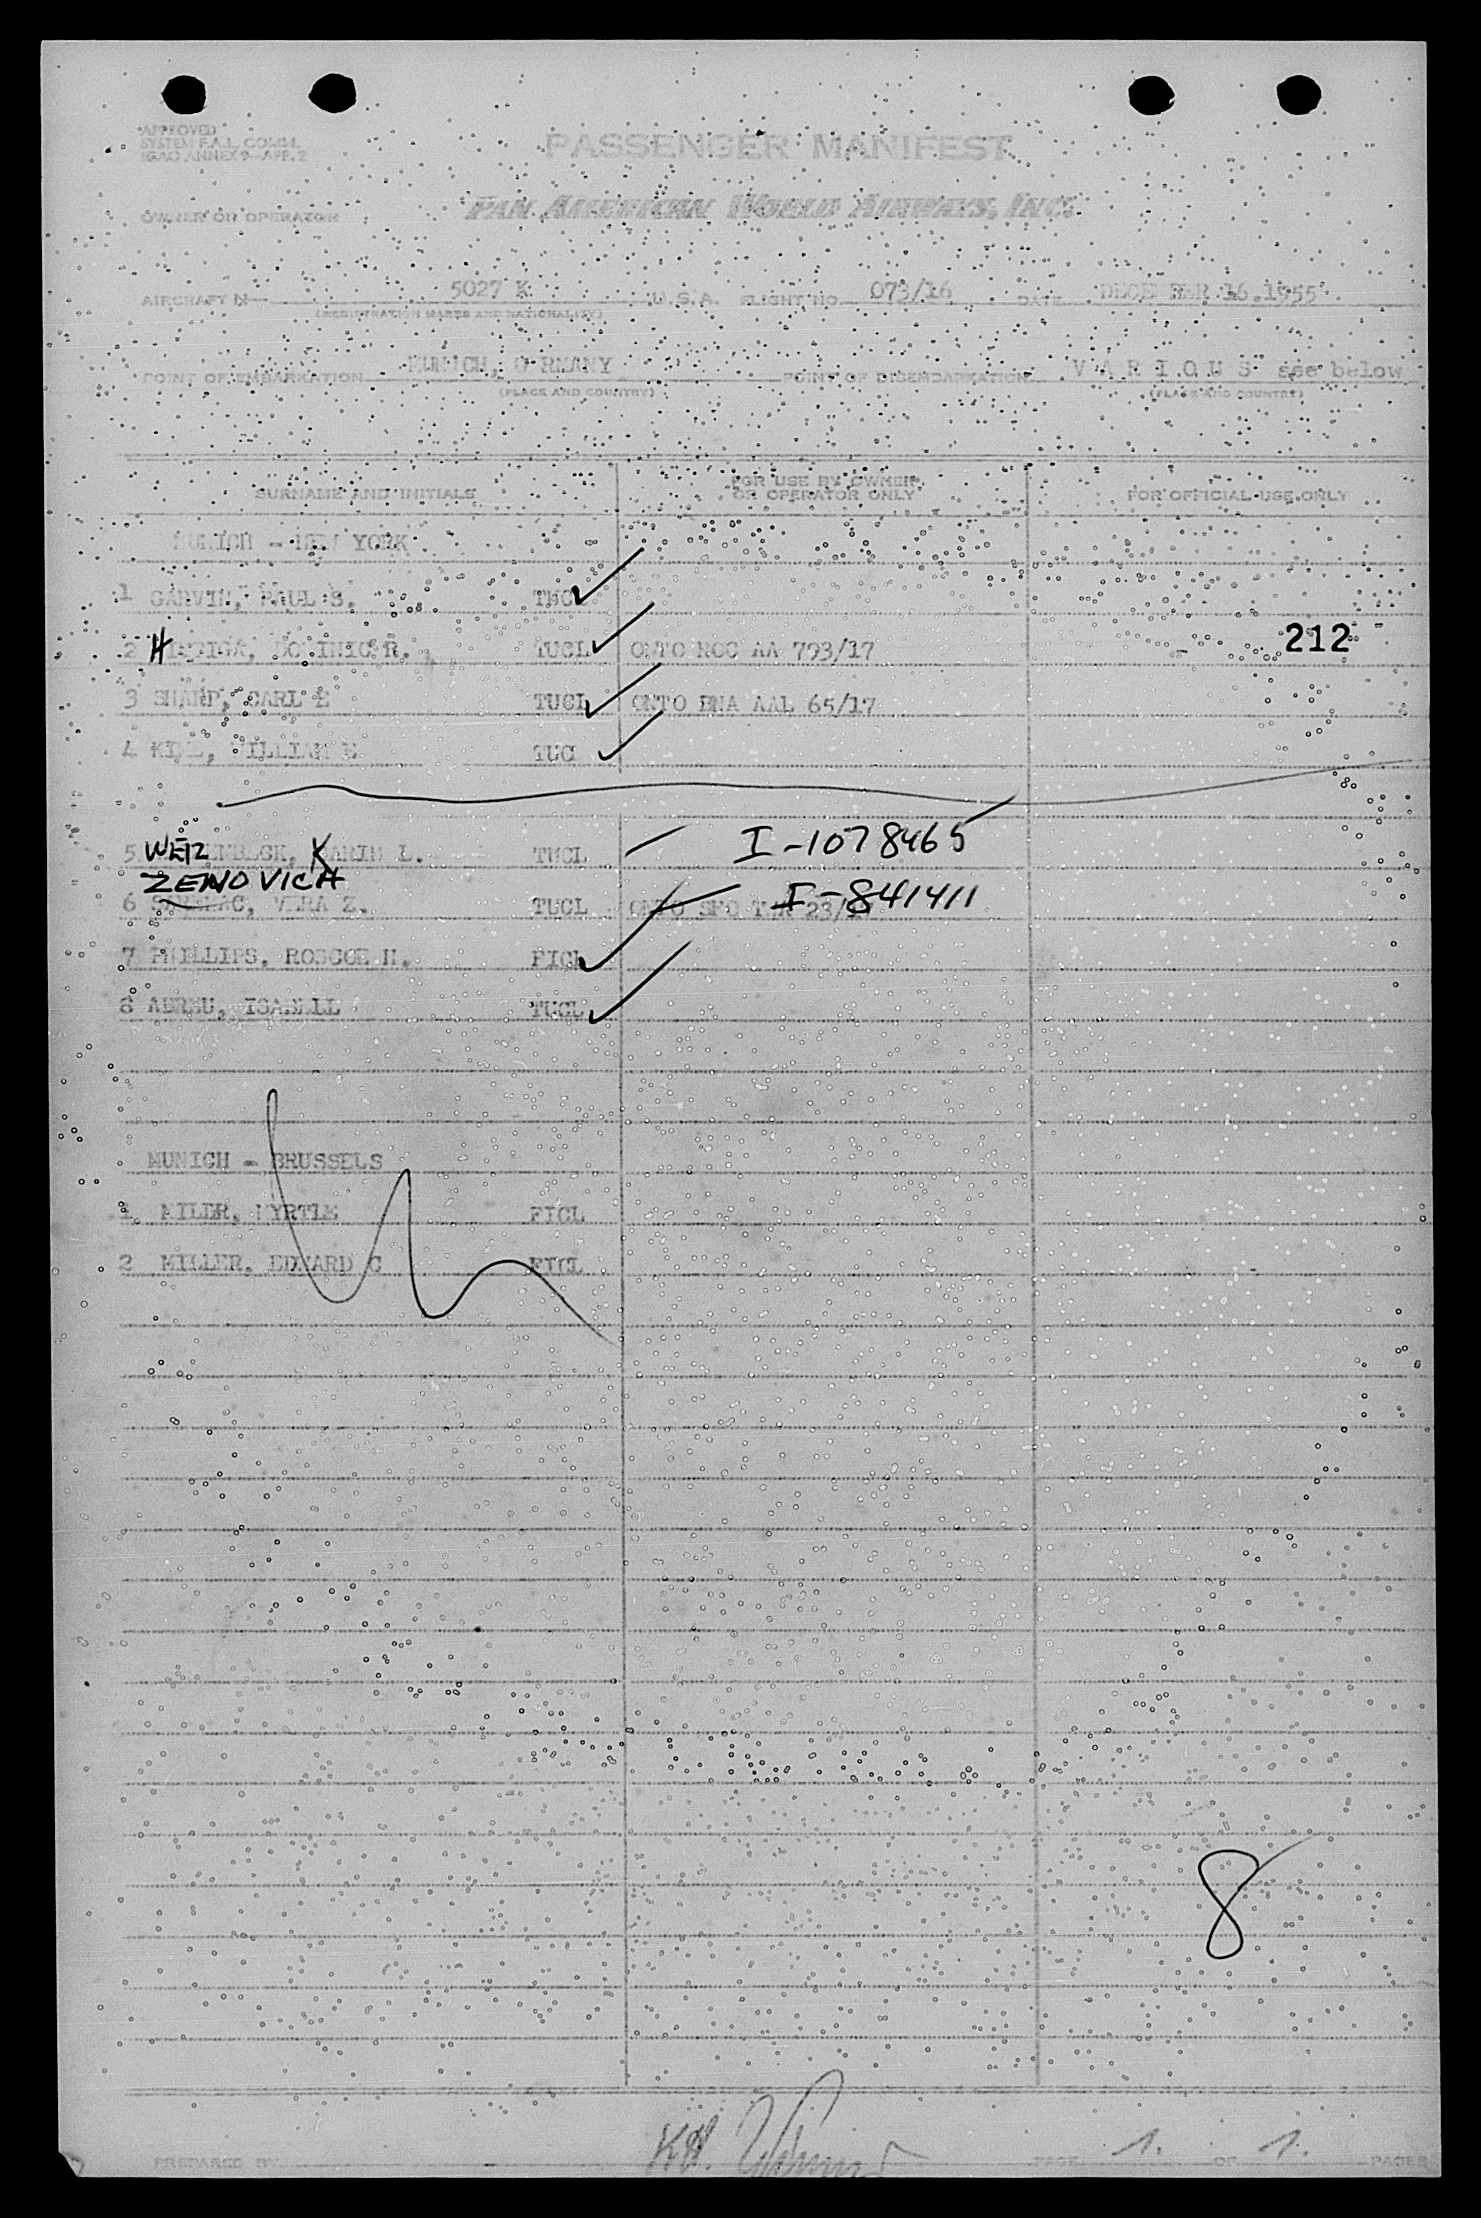 APPROVED
SYSTEM F.A.L. COMM.
ICAO ANNEX 9—APP. 2
PASSENGER MANIFEST
OWNER OR OPERATOR PAN AMERICAN WORLD AIRWAYS, INC.
AIRCRAFT N— 5027 K U.S.A. FLIGHT NO. 073/16 DATE DECE BER 16.1955
(REGISTRATION MARKS AND NATIONALITY)
POINT OF EMBARKATION MUNICH, G RMANY POINT OF DISEMBARKATION V A R I O U S see below
(PLACE AND COUNTRY) (PLACE AND COUNTRY)
SURNAME AND INITIALS FOR USE BY OWNER OR OPERATOR ONLY FOR OFFICIAL USE ONLY
MUNICH - NEW YORK
1 GARVIN, PAUL S. TUCL
212
2 H DOMINIC R. TUCL ONTO ROC AA 793/17
3 SHARP, CARL E TUCL ONTO BNA AAL 65/17
4 WILLIAM E TUC
5 WEIZ KARIN L. TUCL I-1078465
ZENOVICH
6 VERA Z. TUCL ONTO SFO 23/17 I-841411
7 PHILLIPS, ROSCOE H. FICL
8 ABREU, ISABELL TUCL
MUNICH - BRUSSELS
1 MILER, MYRTLE FICL
2 MILLER, EDWARD C FICL
8
PREPARED BY PAGE 1. OF 1. PAGES